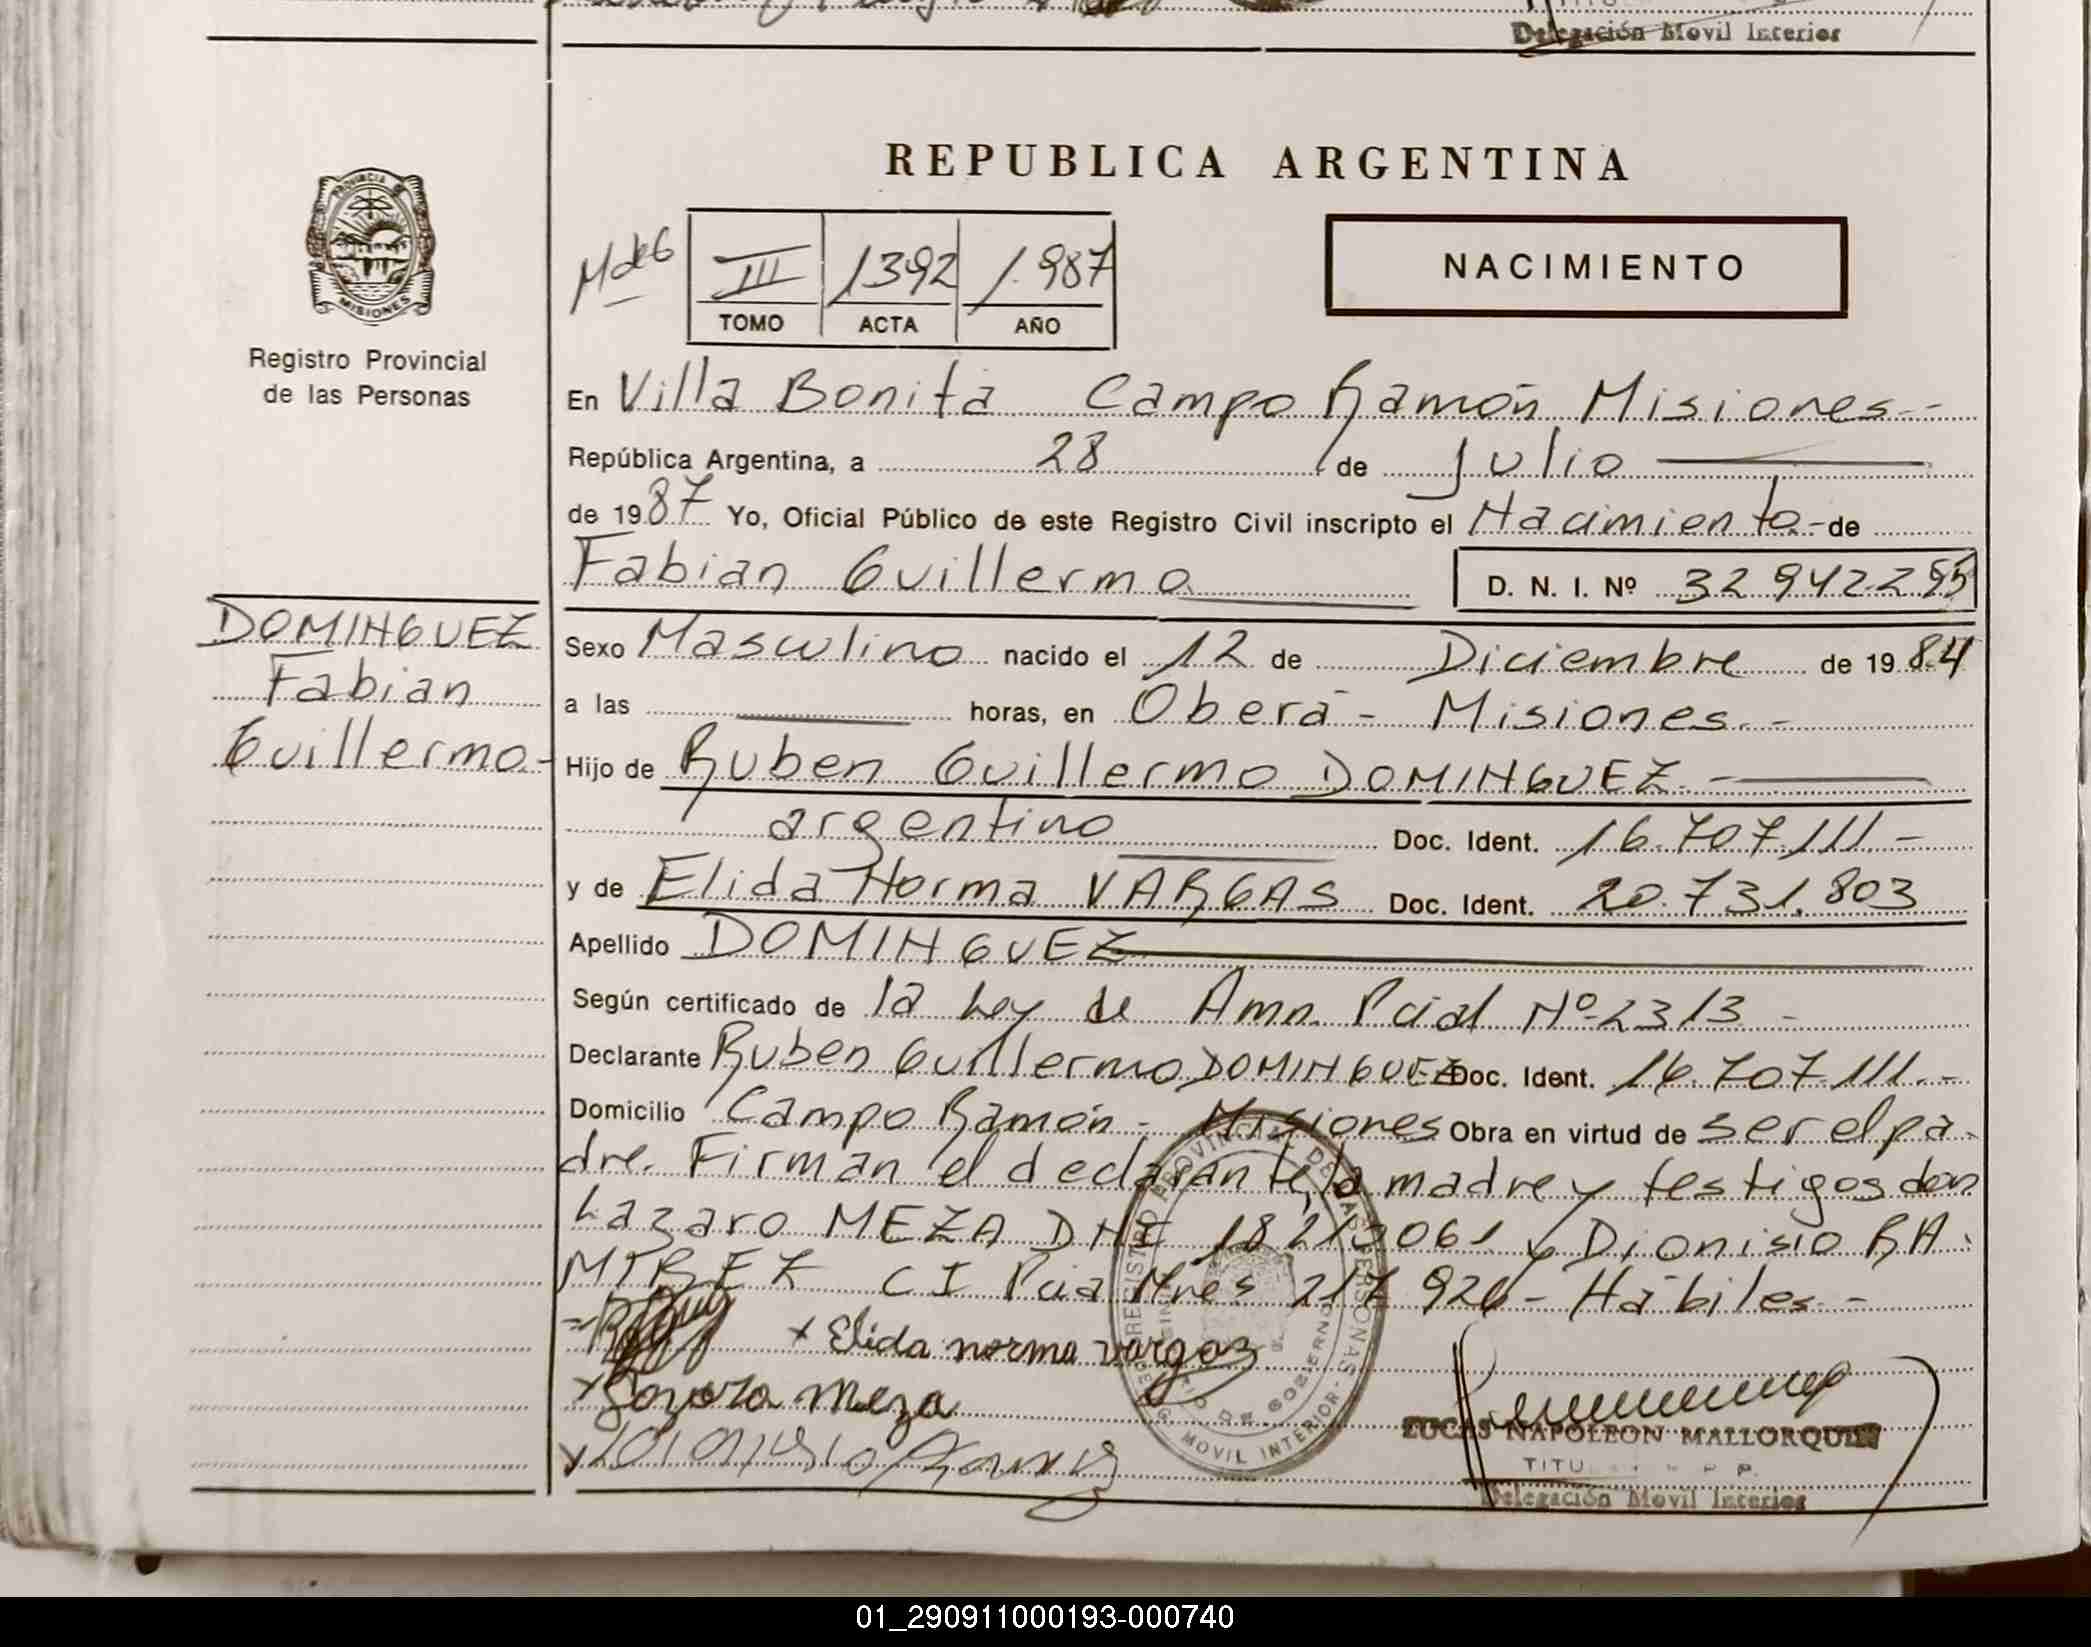 Delegación Movil Interior
REPUBLICA ARGENTINA
PROVINCIA DE
MISIONES
Registro Provincial
de las Personas
MdeG
III 1392 1.987
TOMO ACTA AÑO
NACIMIENTO
En Villa Bonita Campo Ramón Misiones.-
República Argentina, a 28 de Julio
de 1987 Yo, Oficial Público de este Registro Civil inscripto el Nacimiento.- de
Fabian Guillermo D. N. I. Nº 32 942 295
DOMINGUEZ
Fabian
Guillermo-
Sexo Masculino nacido el 12 de Diciembre de 1984
a las horas, en Oberá - Misiones.-
Hijo de Ruben Guillermo DOMINGUEZ.-
argentino Doc. Ident. 16.707.111.-
y de Elida Norma VARGAS Doc. Ident. 20.731.803
Apellido DOMINGUEZ
Según certificado de la Ley de Amn. Pcial Nº 2313 -
Declarante Ruben Guillermo DOMINGUEZ Doc. Ident. 16.707.111.-
Domicilio Campo Ramón - Misiones Obra en virtud de ser el pa-
dre. Firman el declarante, la madre y testigos don
Lazaro MEZA DNI 18213061 y Dionisio RA-
MIREZ CI Pcia Mnes 217 926 - Hábiles.-
x Elida norma vargas
x Lozoro Meza
LUCAS NAPOLEON MALLORQUIN
Delegación Movil Interior
REGISTRO PROVINCIAL DE LAS PERSONAS - DELEG. MOVIL INTERIOR -
01_290911000193-000740